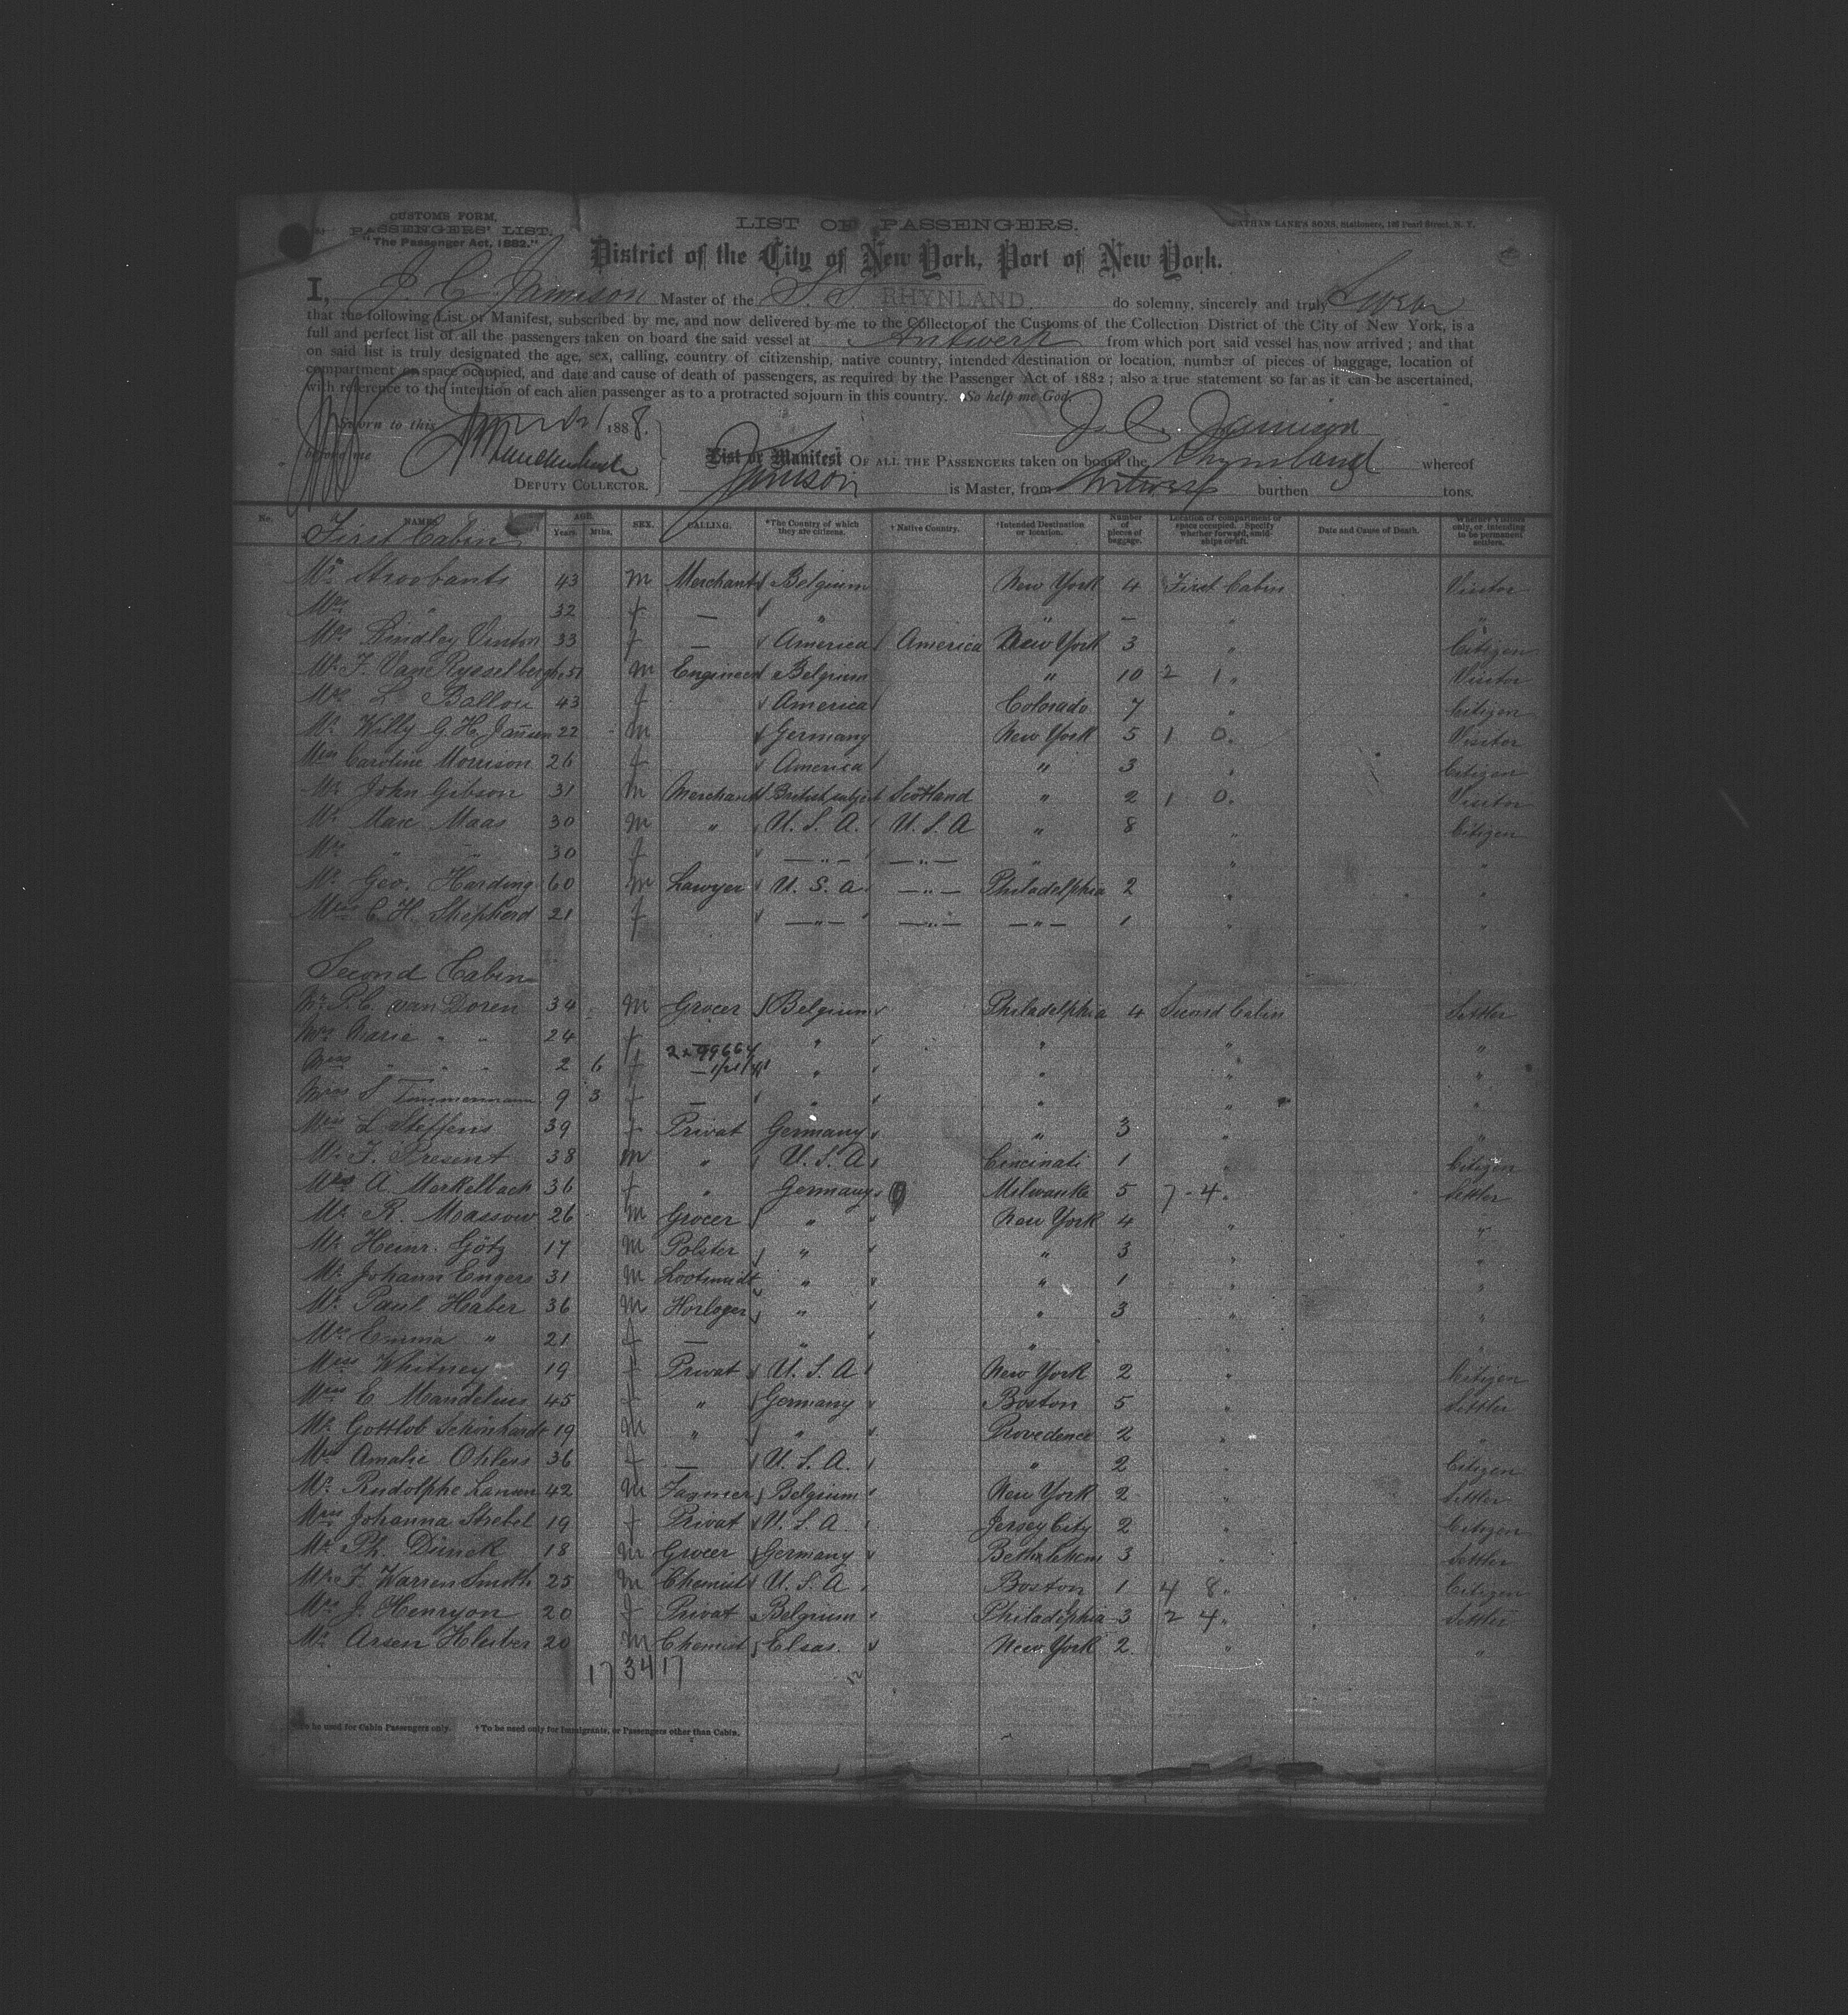 CUSTOMS FORM,
PASSENGERS' LIST.
"The Passenger Act, 1882."
LIST OF PASSENGERS.
NATHAN LANE'S SONS, Stationers, Pearl Street, N. Y.
District of the City of New York, Port of New York.
I, J. C. Jamison Master of the S. S. RHYNLAND do solemny, sincerely and truly Swear
that the following List or Manifest, subscribed by me, and now delivered by me to the Collector of the Customs of the Collection District of the City of New York, is a
full and perfect list of all the passengers taken on board the said vessel at Antwerp from which port said vessel has now arrived ; and that
on said list is truly designated the age, sex, calling, country of citizenship, native country, intended destination or location, number of pieces of baggage, location of
compartment or space occupied, and date and cause of death of passengers, as required by the Passenger Act of 1882 ; also a true statement so far as it can be ascertained,
with reference to the intention of each alien passenger as to a protracted sojourn in this country. So help me God.
Sworn to this 1888. J. C. Jamison
before me
DEPUTY COLLECTOR.
List or Manifest OF ALL THE PASSENGERS taken on board the Rhynland whereof
Jamison is Master, from Antwerp burthen tons.
No. NAMES AGE. Years. Mths. SEX. CALLING. *The Country of which they are citizens. † Native Country. †Intended Destination or location. Number of pieces of baggage. Location of compartment or space occupied. Specify whether forward, amidships or aft. Date and Cause of Death. Whether Visitors only, or intending to be permanent settlers.
First Cabin
Mr Stroobants 43 m Merchant Belgium New York 4 First Cabin Visitor
Mrs " 32 f — " " — " "
Mrs Lindley Vinton 33 f — America America New York 3 " Citizen
Mr F. Van Rysselberghe 51 m Engineer Belgium " 10 2 1 " Visitor
Mrs L. Ballou 43 f America Colorado 7 " Citizen
Mr Willy G. H. Janssen 22 m Germany New York 5 1 0. Visitor
Miss Caroline Morrison 26 f America " 3 " Citizen
Mr John Gibson 31 m Merchant British subject Scotland " 2 1 0. Visitor
Mr Marc Maas 30 m " U. S. A. U. S. A " 8 " Citizen
Mrs " " 30 f — " — — " — " " "
Mr Geo. Harding 60 m Lawyer U. S. a. — " — Philadelphia 2 " "
Mrs C. H. Shepherd 21 f — " — — " — — " — 1 " "
Second Cabin
Mr P. C. van Doren 34 m Grocer Belgium Philadelphia 4 Second Cabin Settler
Mrs Marie " " 24 f " " " "
Miss " " " 2 6 f " " " "
Miss S Timmermann 9 3 f — " " " "
Miss L Steffens 39 f Privat Germany " 3 " "
Mr F. Present 38 m " U. S. A Cincinati 1 " Citizen
Mrs A. Merkelbach 36 f " Germany Milwauke 5 7 - 4. Settler
Mr R. Massow 26 m Grocer " New York 4 " "
Mr Heinr. Götz 17 m Polster " " 3 " "
Mr Johann Engers 31 m " " 1 " "
Mr Paul Haber 36 m Horloger " " 3 " "
Mrs Emma " 21 f — " " " "
Miss Whitney 19 f Privat U. S. A New York 2 " Citizen
Mrs C. Mandelius 45 f " Germany Boston 5 " Settler
Mr Gottlob Schönhardt 19 m " " Provedence 2 " "
Mrs Amalie Ohlers 36 f — U. S. A. " 2 " Citizen
Mr Rudolphe 42 m Farmer Belgium New York 2 " Settler
Miss Johanna Strebel 19 f Privat U. S. A Jersey City 2 " Citizen
Mr Ph. 18 m Grocer Germany Bethlehem 3 " Settler
Mr F. Warren Smith 25 m Chemist U. S. A Boston 1 4 8 " Citizen
Mrs J. Henryon 20 f Privat Belgium Philadelphia 3 2 4 " Settler
Mr Arsen Kleiber 20 m Chemist Elsas. New York 2 " "
17 34 17
12
*To be used for Cabin Passengers only. † To be used only for Immigrants, or Passengers other than Cabin.